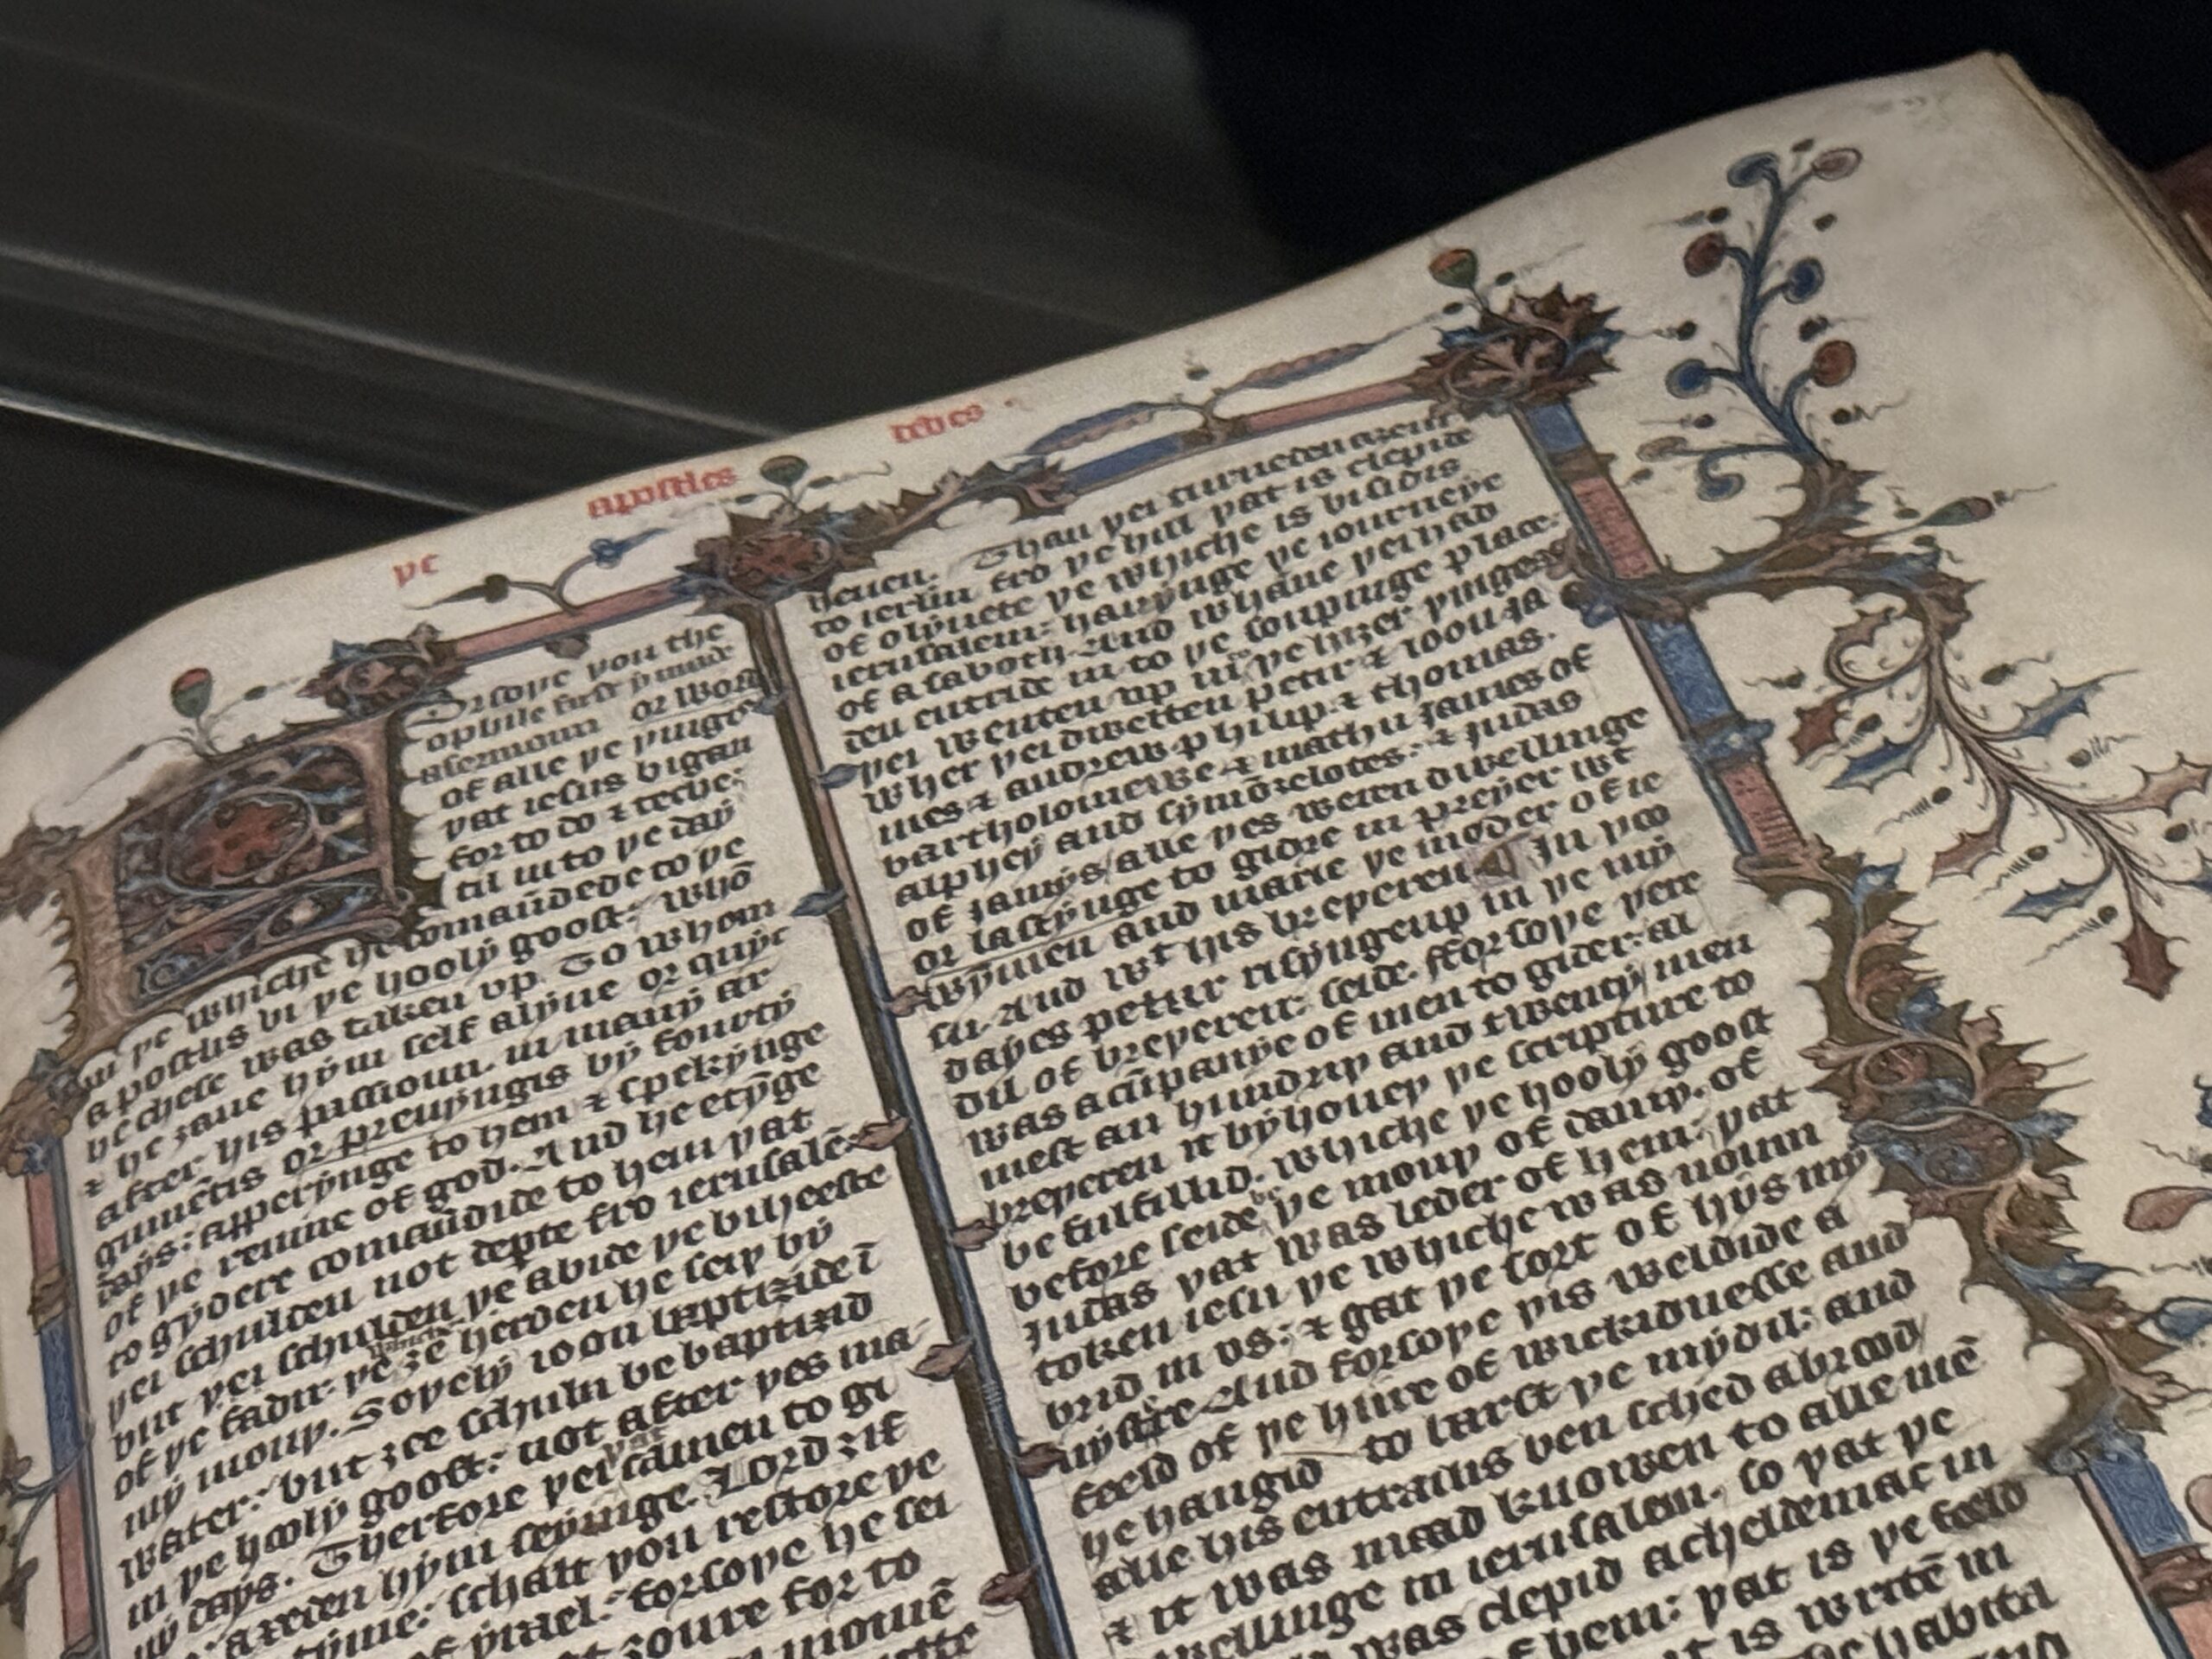 þe apostles dedes
Orsoþe þou the
ophile first y made
a sermoun or word
of alle þe þingis
þat iesus bigan
for to do & teche:
til in to þe day
in þe whiche he comaūdede to þe
apostlis bi þe hooly goost: whō
he chese was taken vp. To whom
& he ȝaue hym self alyue or quyc
after his passioun. in many ar
gumētis or preuyngis by fourty
days: apperynge to hem & spekynge
of þe reume of god. And he etȳge
to gydere comaūdide to hem þat
þei schulden not depte fro ierusalē:
but þei schulden þe abide þe biheeste
of þe fadir: þe ȝe herden he seiþ by
my mouþ. Soþely ioon baptizide ī
water: but ȝee schuln be baptizid
in þe hooly goost: not after þes ma
ny days. Therfore þei camen to gi
axeden hym seyinge. Lord ȝif
tyme: schalt þou restore þe
of yrael. forsoþe he sei
ȝoure for to
mouē
heuen. Than þei turneden aȝein
to ierlm fro þe hill þat is clepid
of olyuete þe whiche is bisidis
ierusalem: hauynge þe iourneye
of a saboth. And whane þei had
den entride in to þe soupinge place:
þei wenten up in þe hiȝer þinges
wher þei dwelten petir & ioon ja
mes & andrew philip & thomas.
bartholomewe & mathu james of
alphey and symō zelotes: & judas
of jamys alle þes weren dwellinge
or lastynge to gidre in preyer wt
wymen and marie þe moder of ie
su. And wt his breþeren In þoo
dayes petur risynge up in þe my
dil of breþeren: seide. fforsoþe þere
was a cūpanye of men to gider: al
mest an hundriþ and twenty men
breþeren it byhoueþ þe scripture to
be fulfillid. whiche þe hooly goost
before seide be þe mouþ of dauiþ. of
judas þat was leder of hem: þat
token iesu þe whiche was noum
brid in vs: & gat þe sort of hys my
nystre And forsoþe þis weldide a
feeld of þe hire of wickidnesse and
he hangid to barst þe mydil: and
alle his entrailis ben sched abrood
& it was maad knowen to alle mē
dwellinge in ierusalem. so þat þe
was clepid acheldemac in
of hem: þat is þe feeld
it is writē in
habita